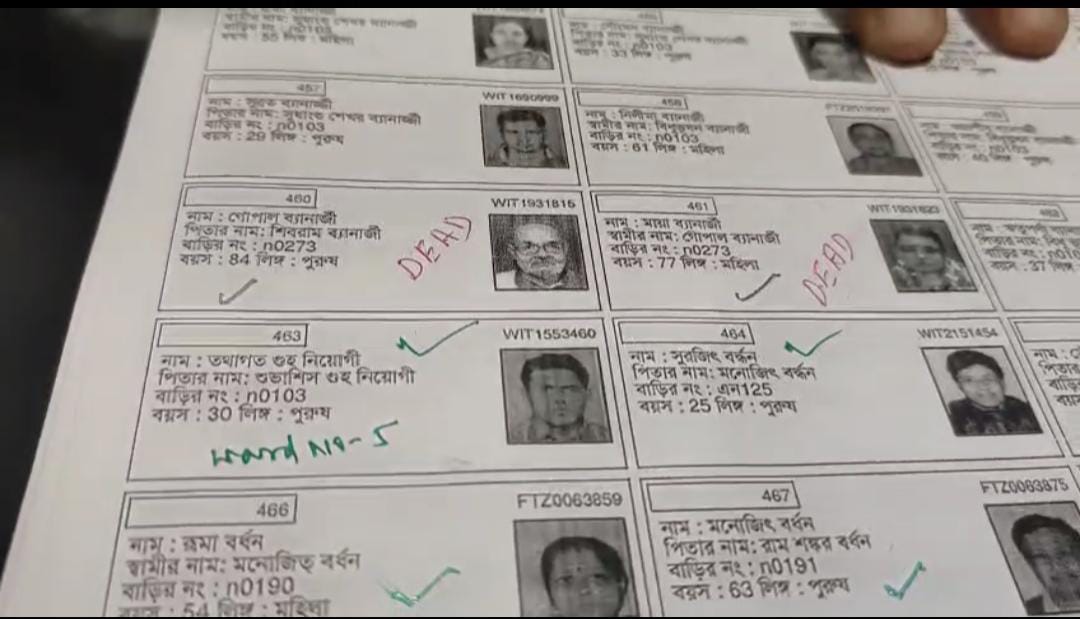 বাড়ির নং : n0103
বয়স : 55 লিঙ্গ : মহিলা
বয়স : 33 লিঙ্গ : পুরুষ
457
WIT1690999
নাম : সুব্রত ব্যানার্জী
পিতার নাম: সুধাংশু শেখর ব্যানার্জী
বাড়ির নং : n0103
বয়স : 29 লিঙ্গ : পুরুষ
458
নাম : নিলীমা ব্যানার্জী
স্বামীর নাম: বিধুভূষন ব্যানার্জী
বাড়ির নং : n0103
বয়স : 61 লিঙ্গ : মহিলা
460
WIT1931815
নাম : গোপাল ব্যানার্জী
পিতার নাম: শিবরাম ব্যানার্জী
বাড়ির নং : n0273
বয়স : 84 লিঙ্গ : পুরুষ
DEAD
461
WIT1931823
নাম : মায়া ব্যানার্জী
স্বামীর নাম: গোপাল ব্যানার্জী
বাড়ির নং : n0273
বয়স : 77 লিঙ্গ : মহিলা
DEAD
462
463
WIT1553460
নাম : তথাগত গুহ নিয়োগী
পিতার নাম: শুভাশিস গুহ নিয়োগী
বাড়ির নং : n0103
বয়স : 30 লিঙ্গ : পুরুষ
ward No-5
464
WIT2151454
নাম : সুরজিৎ বর্দ্ধন
পিতার নাম: মনোজিৎ বর্দ্ধন
বাড়ির নং : এন125
বয়স : 25 লিঙ্গ : পুরুষ
466
FTZ0063859
নাম : রূমা বর্ধন
স্বামীর নাম: মনোজিত্ বর্ধন
বাড়ির নং : n0190
বয়স : 54 লিঙ্গ : মহিলা
467
FTZ0063875
নাম : মনোজিৎ বর্ধন
পিতার নাম: রাম শঙ্কর বর্ধন
বাড়ির নং : n0191
বয়স : 63 লিঙ্গ : পুরুষ